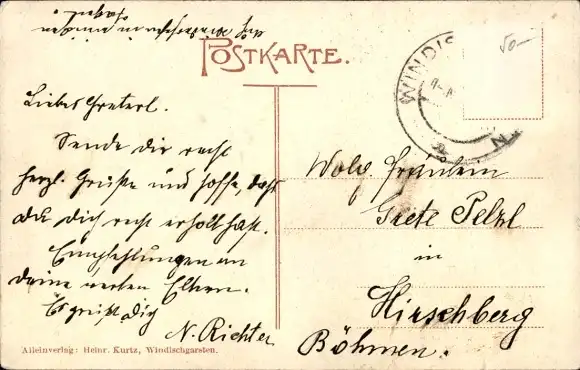 POSTKARTE.
50-
WINDIS
Liebes Greterl.
Sende dir recht
herzl. Grüße und hoffe, daß
du dich recht erholt hast.
Empfehlungen an
deine werten Eltern.
Es grüßt dich
N. Richter
auf Wiedersehen in einigen
Tagen!
Wolg. Fräulein
Grete Pelzl
in
Hirschberg
Böhmen.
Alleinverlag: Heinr. Kurtz, Windischgarsten.